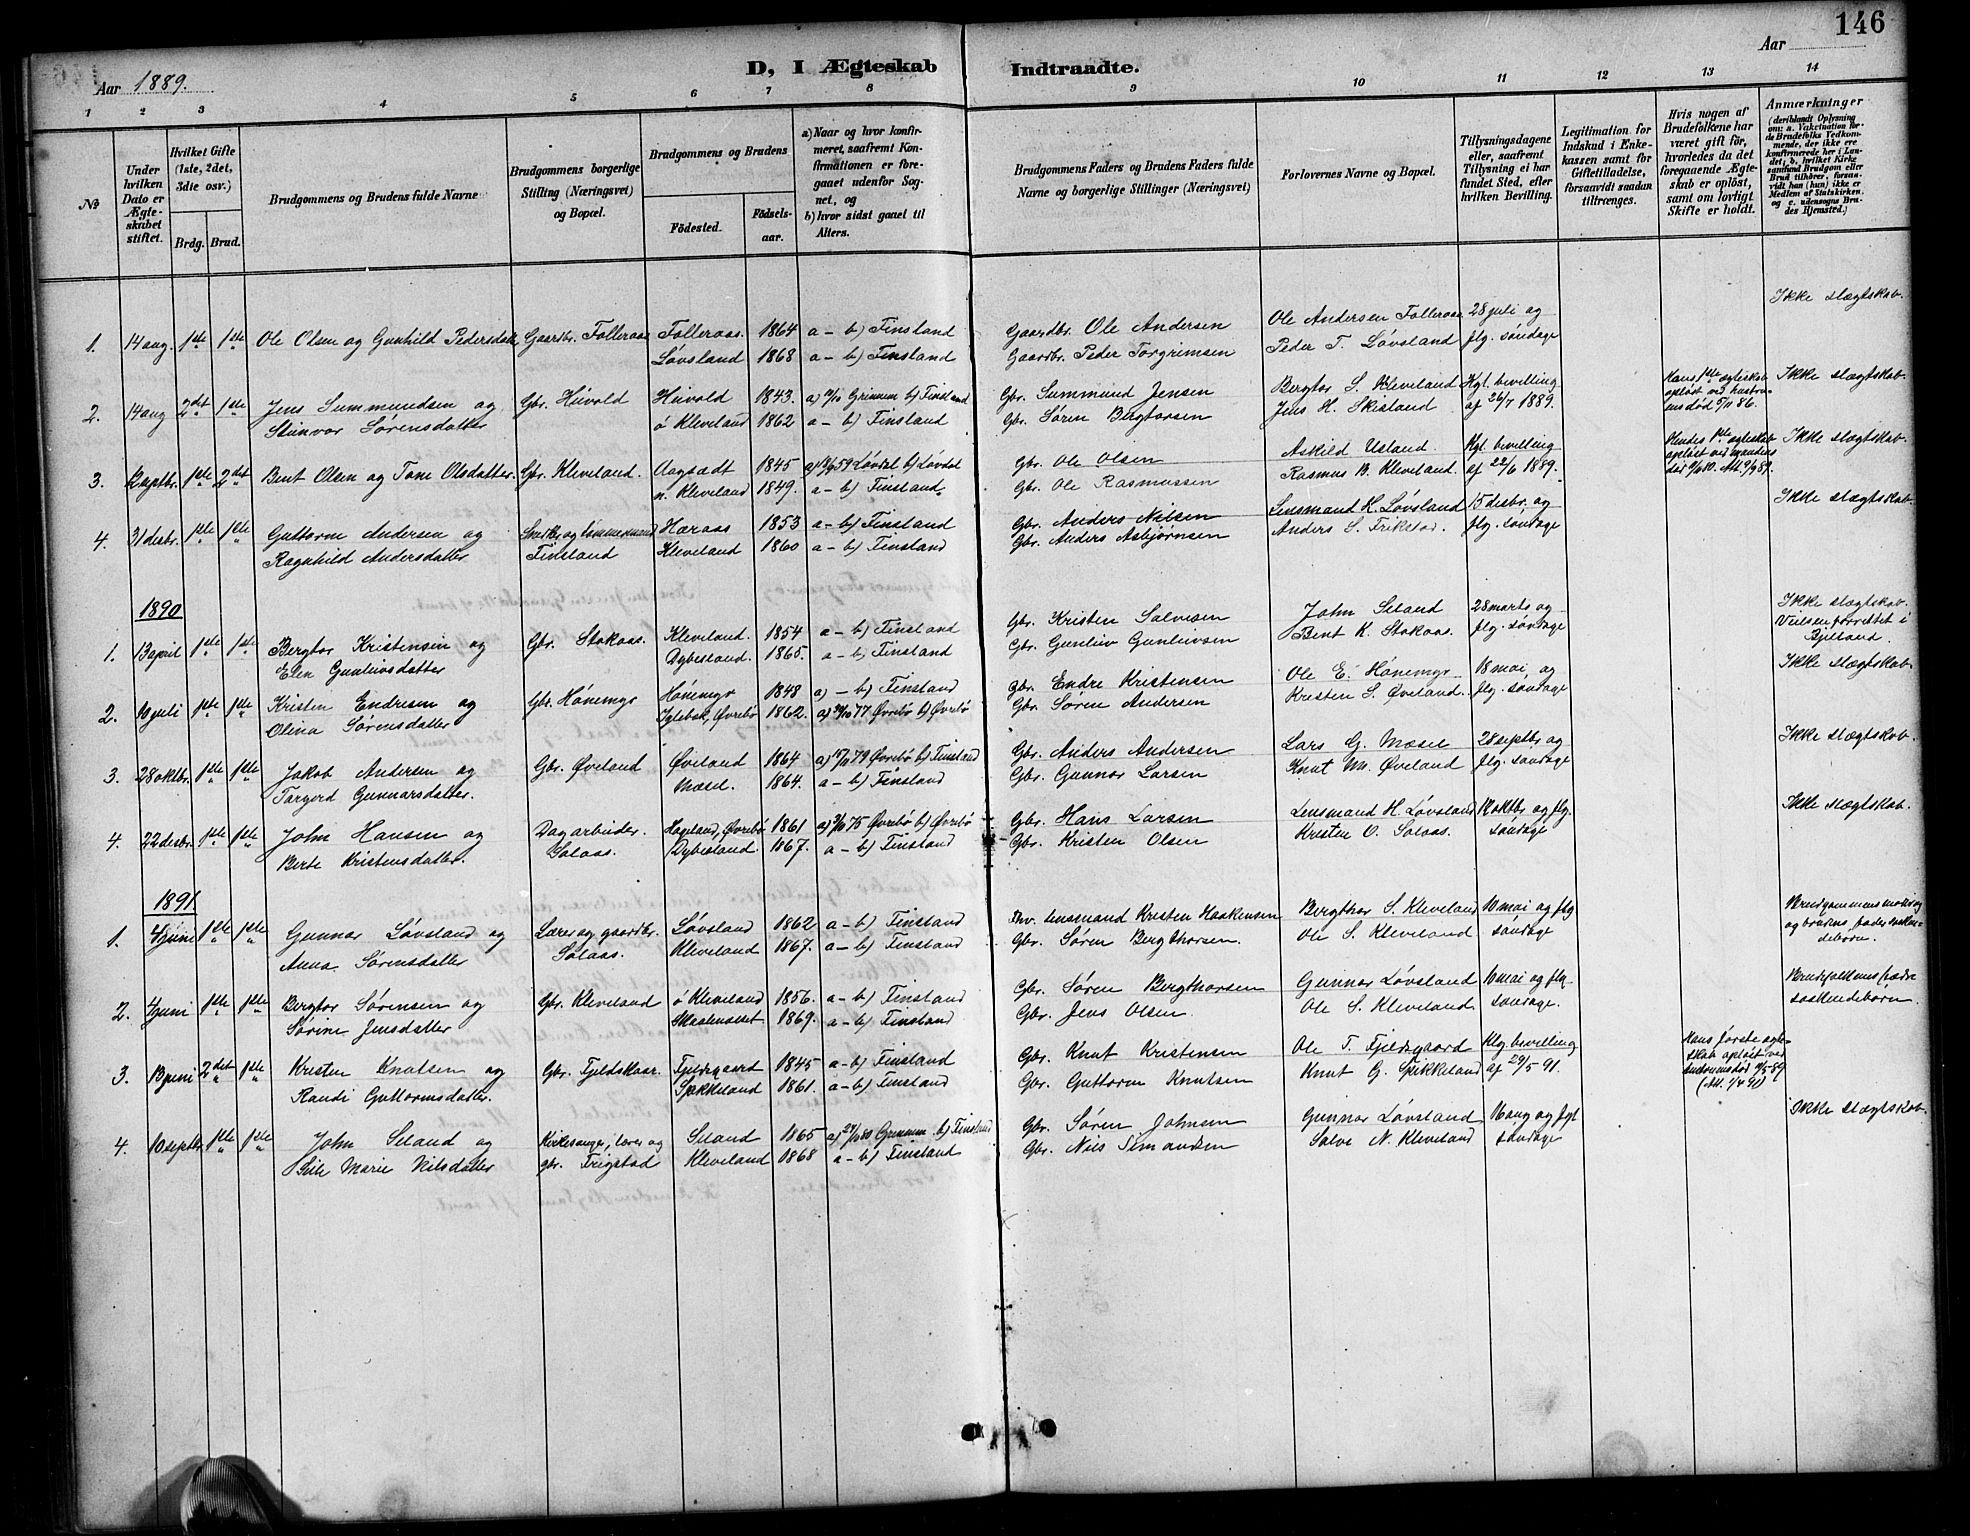 146
Aar 1889.
D, I Ægteskab Indtraadte.
Aar
1 2 3 4 5 6 7 8 9 10 11 12 13 14
No
Under hvilken Dato er Ægteskabet stiftet.
Hvilket Gifte (1ste, 2det, 3die osv.)
Brdg. Brud.
Brudgommens og Brudens fulde Navne
Brudgommens borgerlige Stilling (Næringsvei) og Bopæl.
Brudgommens og Brudens
Födested.
Födselsaar.
a) Naar og hvor konfirmeret, saafremt Konfirmationen er foregaaet udenfor Sognet, og
b) hvor sidst gaaet til Alters.
Brudgommens Faders og Brudens Faders fulde Navne og borgerlige Stillinger (Næringsvei)
Forlovernes Navne og Bopæl.
Tillysningsdagene eller, saafremt Tillysning ei har fundet Sted, efter hvilken Bevilling.
Legitimation for Indskud i Enkekassen samt for Giftetilladelse, forsaavidt saadan tiltrænges.
Hvis nogen af Brudefolkene har været gift för, hvorledes da det foregaaende Ægteskab er oplöst, samt om lovligt Skifte er holdt.
Anmærkninger (deriblandt Oplysning om: a. Vakcination for de Brudefolks Vedkommende, der ikke ere konfirmerede her i Landet, b. hvilket Kirkesamfund Brudgom eller Brud tilhörer, forsaavidt han (hun) ikke er Medlem af Statskirken, og c. udensogns Brudes Hjemsted.)
1. 14 aug. 1ste 1ste Ole Olsen og Gunhild Pedersdatter Gaardbr. Folleraas Folleraas 1864 a – b) Finsland Gaardbr. Ole Andersen Ole Andersen Folleraas 28 juli og Ikke slægtskab.
Løvsland 1868 a – b) Finsland Gaardbr. Peder Torgrimsen Peder T. Løvsland flg. søndage
2. 14 aug 2det 1ste Jens Summundsen og Gbr. Hüvold Hüvold 1843. b) Finsland Gbr. Summund Jensen Bergtor S. Kleveland Kgl. bevilling Hans 1ste ægteskab opløst ved hustruens død 5/11 86. Ikke slægtskab.
Stinvor Sørensdatter ö Kleveland 1862 a – b) Finsland Gbr. Søren Bergtorsen Jens H. Skisland af 26/7 1889.
3. 1ste 2det Bent Olsen og Tone Olsdatter Gbr. Kleveland. Aagsadt 1845 Løvdal b) Løvdal Gbr. Ole Olsen Askild Usland Kgl. bevilling Hendes 1ste ægteskab opløst ved mandens død Ikke slægtskab.
n. Kleveland 1849. a – b) Finsland Gbr. Ole Rasmussen Rasmus B. Kleveland. af 22/6 1889.
4. 31 desbr. 1ste 1ste Guttorm Andersen og Snedker og tømmermand Haraas 1853 a – b) Finsland Gbr. Anders Nilsen Lensmand H. Løvsland 15 desbr. og Ikke slægtskab.
Ragnhild Andersdatter Finsland Kleveland 1860 a – b) Finsland Gbr. Anders Asbjørnsen Anders S. Frikstad. flg. søndage
1890
1. 13 april 1ste 1ste Bergtor Kristensen og Gbr. Stokaas. Kleveland. 1854 a – b) Finsland Gbr. Kristen Salvesen John Seland 28 marts og Ikke slægtskab. Vielsen forrettet i Bjelland.
Elen Gunleivsdatter Dybesland. 1865. a – b) Finsland Gbr. Gunleiv Gunleivsen Bent K. Stokaas. flg. søndage
2. 10 juli 1ste 1ste Kristen Endresen og Gbr. Hönemyr Hönemyr 1848 a) – b) Finsland Gbr. Endre Kristensen Ole E. Hönemyr 18 mai og Ikke slægtskab.
Olina Sørensdatter Iglebæk, Øvrebø 1862. 77 Øvrebø b) Øvrebø Gbr. Søren Andersen Kristen S. Øveland. flg. søndage
3. 28 oktbr. 1ste 1ste Jakob Andersen og Gbr. Øveland Øveland 1864 79 Øvrebø b) Finsland Gbr. Anders Andersen Lars G. Mæsel 28 septbr og Ikke slægtskab.
Targerd Gunnarsdatter. Mæsel. 1864. a – b) Finsland Gbr. Gunnar Larsen Knut M. Øveland flg. søndage
4. 22 desbr. 1ste 1ste John Hansen og Dagarbeider. Hageland, Øvrebø 1861 75 Øvrebø b) Øvrebø Gbr. Hans Larsen Lensmand H. Løvsland 12 oktbr og flg. Ikke slægtskab.
Berte Kristensdatter. Solaas. Dybesland. 1867. a – b) Finsland Gbr. Kristen Olsen Kristen O. Solaas. søndage
1891.
1. 4 juni 1ste 1ste Gunnar Løvsland og Lærer og gaardbr. Løvsland 1862 a – b) Finsland Fhv. lensmand Kristen Haakensen Bergthor S. Kleveland 10 mai og flg Brudgommens moder og brudens fader søskendebørn.
Anna Sørensdatter Solaas. Kleveland 1867. a – b) Finsland Gbr. Søren Bergthorsen. Ole S. Kleveland søndage
2. 4 juni 1ste 1ste Bergtor Sørensen og Gbr. Kleveland ö Kleveland 1856. a – b) Finsland Gbr. Søren Bergthorsen Gunnar Løvsland 10 mai og flg. Brudefolkenes fædre søskendebørn.
Sørine Jensdatter 1869. a – b) Finsland Gbr. Jens Olsen. Ole S. Kleveland søndage.
3. 13 juni 2det 1ste Kristen Knutsen og Gbr. Fjeldskaar. Fjeldsgaard 1845 a – b) Finsland Gbr. Knut Kristensen Ole T. Fjeldsgaard Klg. bevilling Hans første ægteskab opløst ved hustruens død 9/5 89
Randi Guttormsdatter. Spikkeland 1861. a – b) Finsland Gbr. Guttorm Knutsen Knut G. Spikkeland af 29/5 91.
4. 10 septbr. 1ste 1ste John Seland og Kirkesanger, lærer og Seland 1865 80 Grimum. b) Finsland Gbr. Søren Johnsen Gunnar Løvsland 16 aug og flg. Ikke slægtskab.
Sile Marie Nilsdatter gbr. Frigstad Kleveland 1868 a – b) Finsland Gbr. Nils Simondsen Salve N. Kleveland søndage